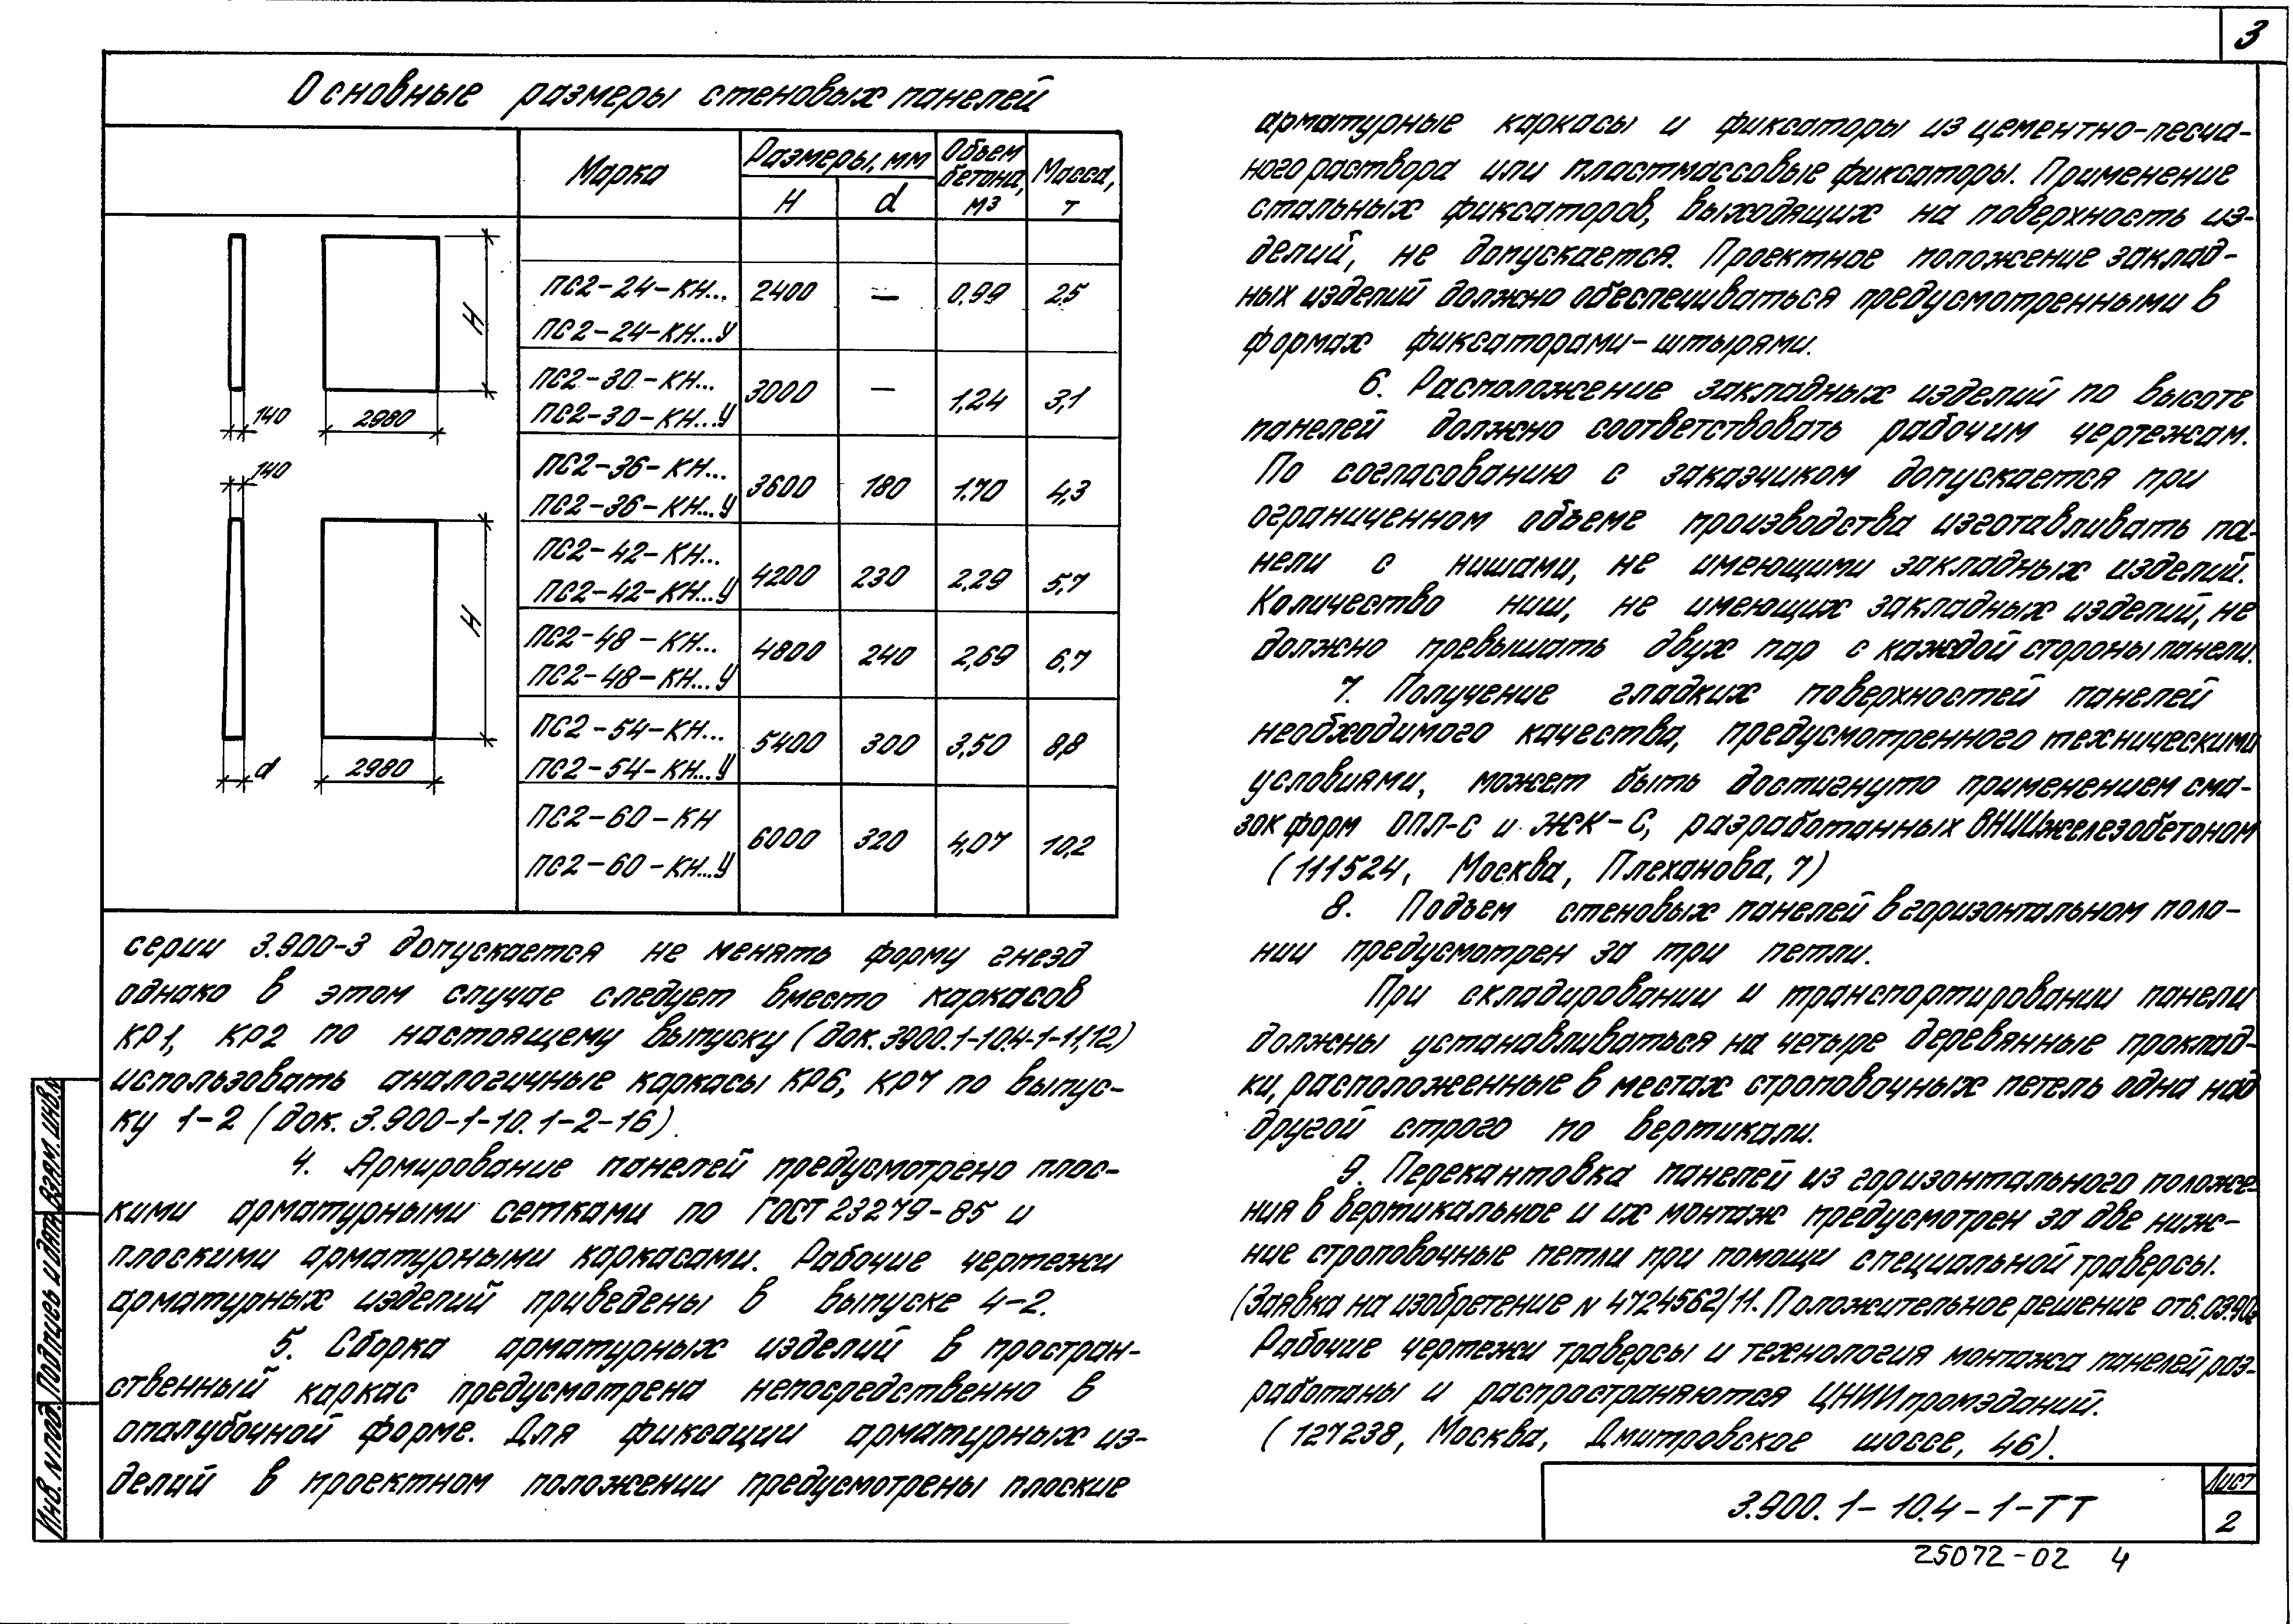 3
Основные размеры стеновых панелей
Марка
Размеры, мм
H
d
Объем
бетона,
м3
Масса,
т
140
2980
H
140
d
2980
H
ПС2-24-КН...
ПС2-24-КН...У
2400 — 0,99 2,5
ПС2-30-КН...
ПС2-30-КН...У
3000 — 1,24 3,1
ПС2-36-КН...
ПС2-36-КН...У
3600 180 1.70 4,3
ПС2-42-КН...
ПС2-42-КН...У
4200 230 2,29 5,7
ПС2-48-КН...
ПС2-48-КН...У
4800 240 2,69 6,7
ПС2-54-КН...
ПС2-54-КН...У
5400 300 3,50 8,8
ПС2-60-КН
ПС2-60-КН...У
6000 320 4,07 10,2
серии 3.900-3 допускается не менять форму гнезд
однако в этом случае следует вместо каркасов
КР1, КР2 по настоящему выпуску (док. 3.900.1-10.4-1-11,12)
использовать аналогичные каркасы КР6, КР7 по выпус-
ку 1-2 (док. 3.900-1-10.1-2-16).
4. Армирование панелей предусмотрено плос-
кими арматурными сетками по ГОСТ 23279-85 и
плоскими арматурными каркасами. Рабочие чертежи
арматурных изделий приведены в выпуске 4-2.
5. Сборка арматурных изделий в простран-
ственный каркас предусмотрена непосредственно в
опалубочной форме. Для фиксации арматурных из-
делий в проектном положении предусмотрены плоские
арматурные каркасы и фиксаторы из цементно-песча-
ного раствора или пластмассовые фиксаторы. Применение
стальных фиксаторов, выходящих на поверхность из-
делий, не допускается. Проектное положение заклад-
ных изделий должно обеспечиваться предусмотренными в
формах фиксаторами-штырями.
6. Расположение закладных изделий по высоте
панелей должно соответствовать рабочим чертежам.
По согласованию с заказчиком допускается при
ограниченном объеме производства изготавливать па-
нели с нишами, не имеющими закладных изделий.
Количество ниш, не имеющих закладных изделий, не
должно превышать двух пар с каждой стороны панели.
7. Получение гладких поверхностей панелей
необходимого качества, предусмотренного техническими
условиями, может быть достигнуто применением сма-
зок форм ОПЛ-С и ЖК-С, разработанных ВНИИжелезобетоном
(111524, Москва, Плеханова, 7)
8. Подъем стеновых панелей в горизонтальном поло-
нии предусмотрен за три петли.
При складировании и транспортировании панели
должны устанавливаться на четыре деревянные проклад-
ки, расположенные в местах строповочных петель одна над
другой строго по вертикали.
9. Перекантовка панелей из горизонтального положе-
ния в вертикальное и их монтаж предусмотрен за две ниж-
ние строповочные петли при помощи специальной траверсы.
(Заявка на изобретение N 4724562/11. Положительное решение от 6.03.90г
Рабочие чертежи траверсы и технология монтажа панелей раз-
работаны и распространяются ЦНИИпромзданий.
(127238, Москва, Дмитровское шоссе, 46).
Инв. N подл. Подпись и дата Взам. инв. N
3.900.1-10.4-1-ТТ
Лист
2
25072-02 4